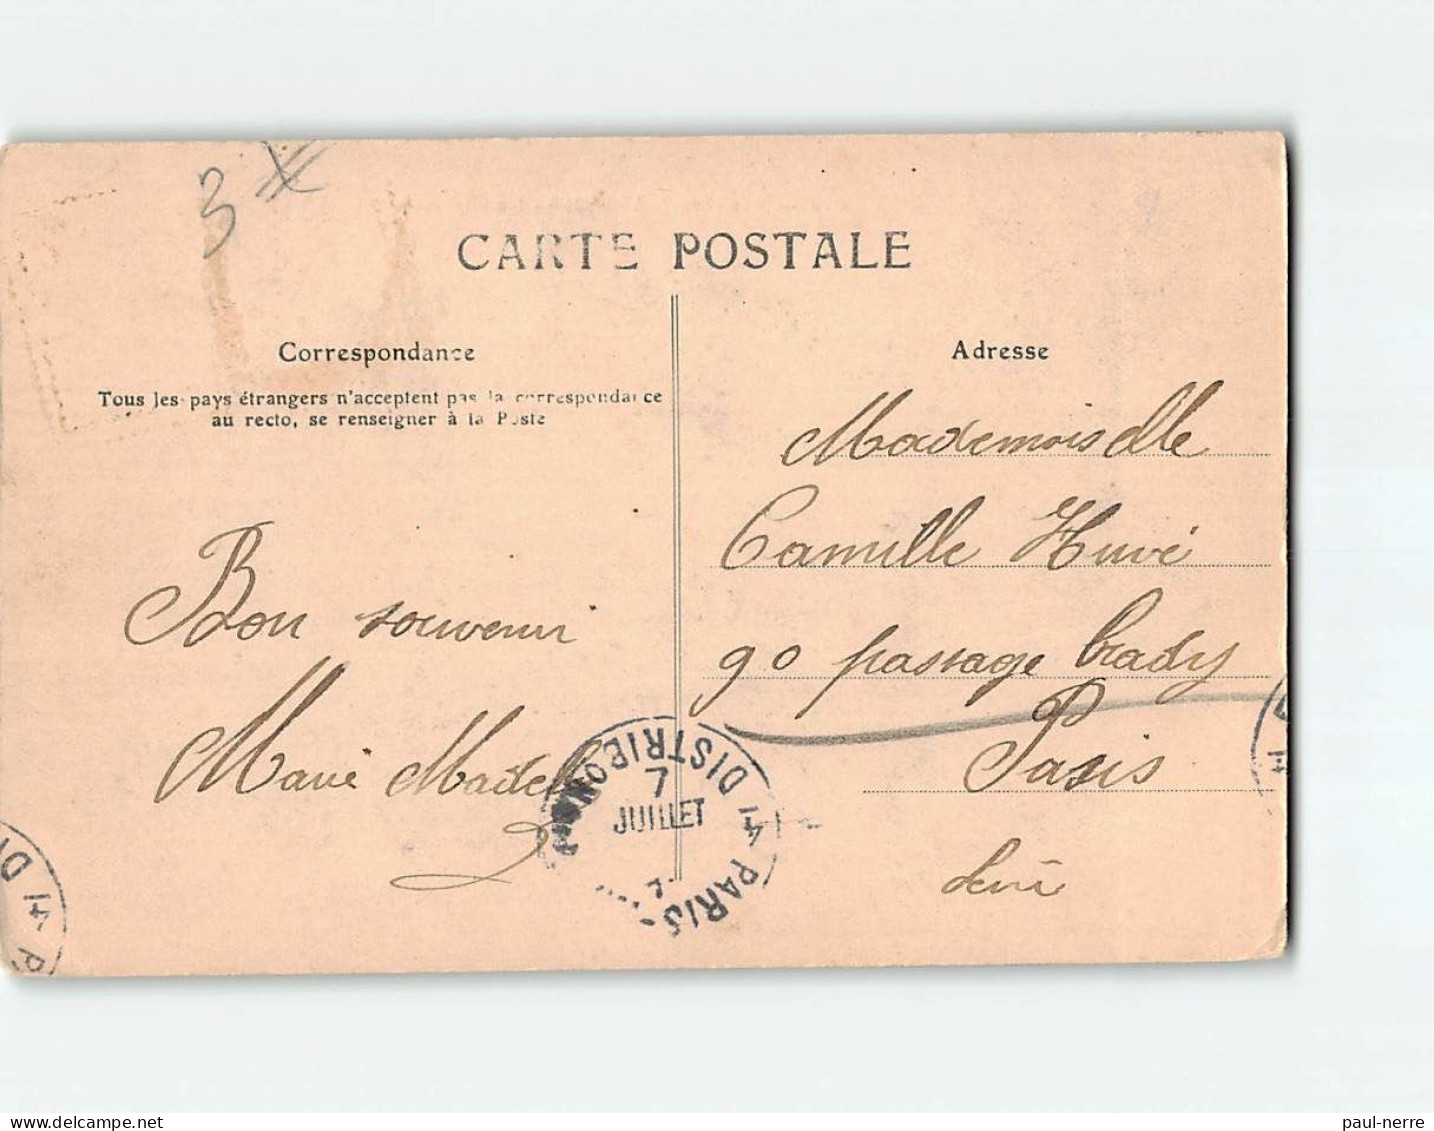 3
CARTE POSTALE
Correspondance
Tous les pays étrangers n'acceptent pas la correspondance
au recto, se renseigner à la Poste
Bon souvenir
Marie Madel
Adresse
Mademoiselle
Camille Huvé
90 passage brady
Paris
PARIS
DISTRIBON
7
JUILLET
41 DI
P
paul-nerre